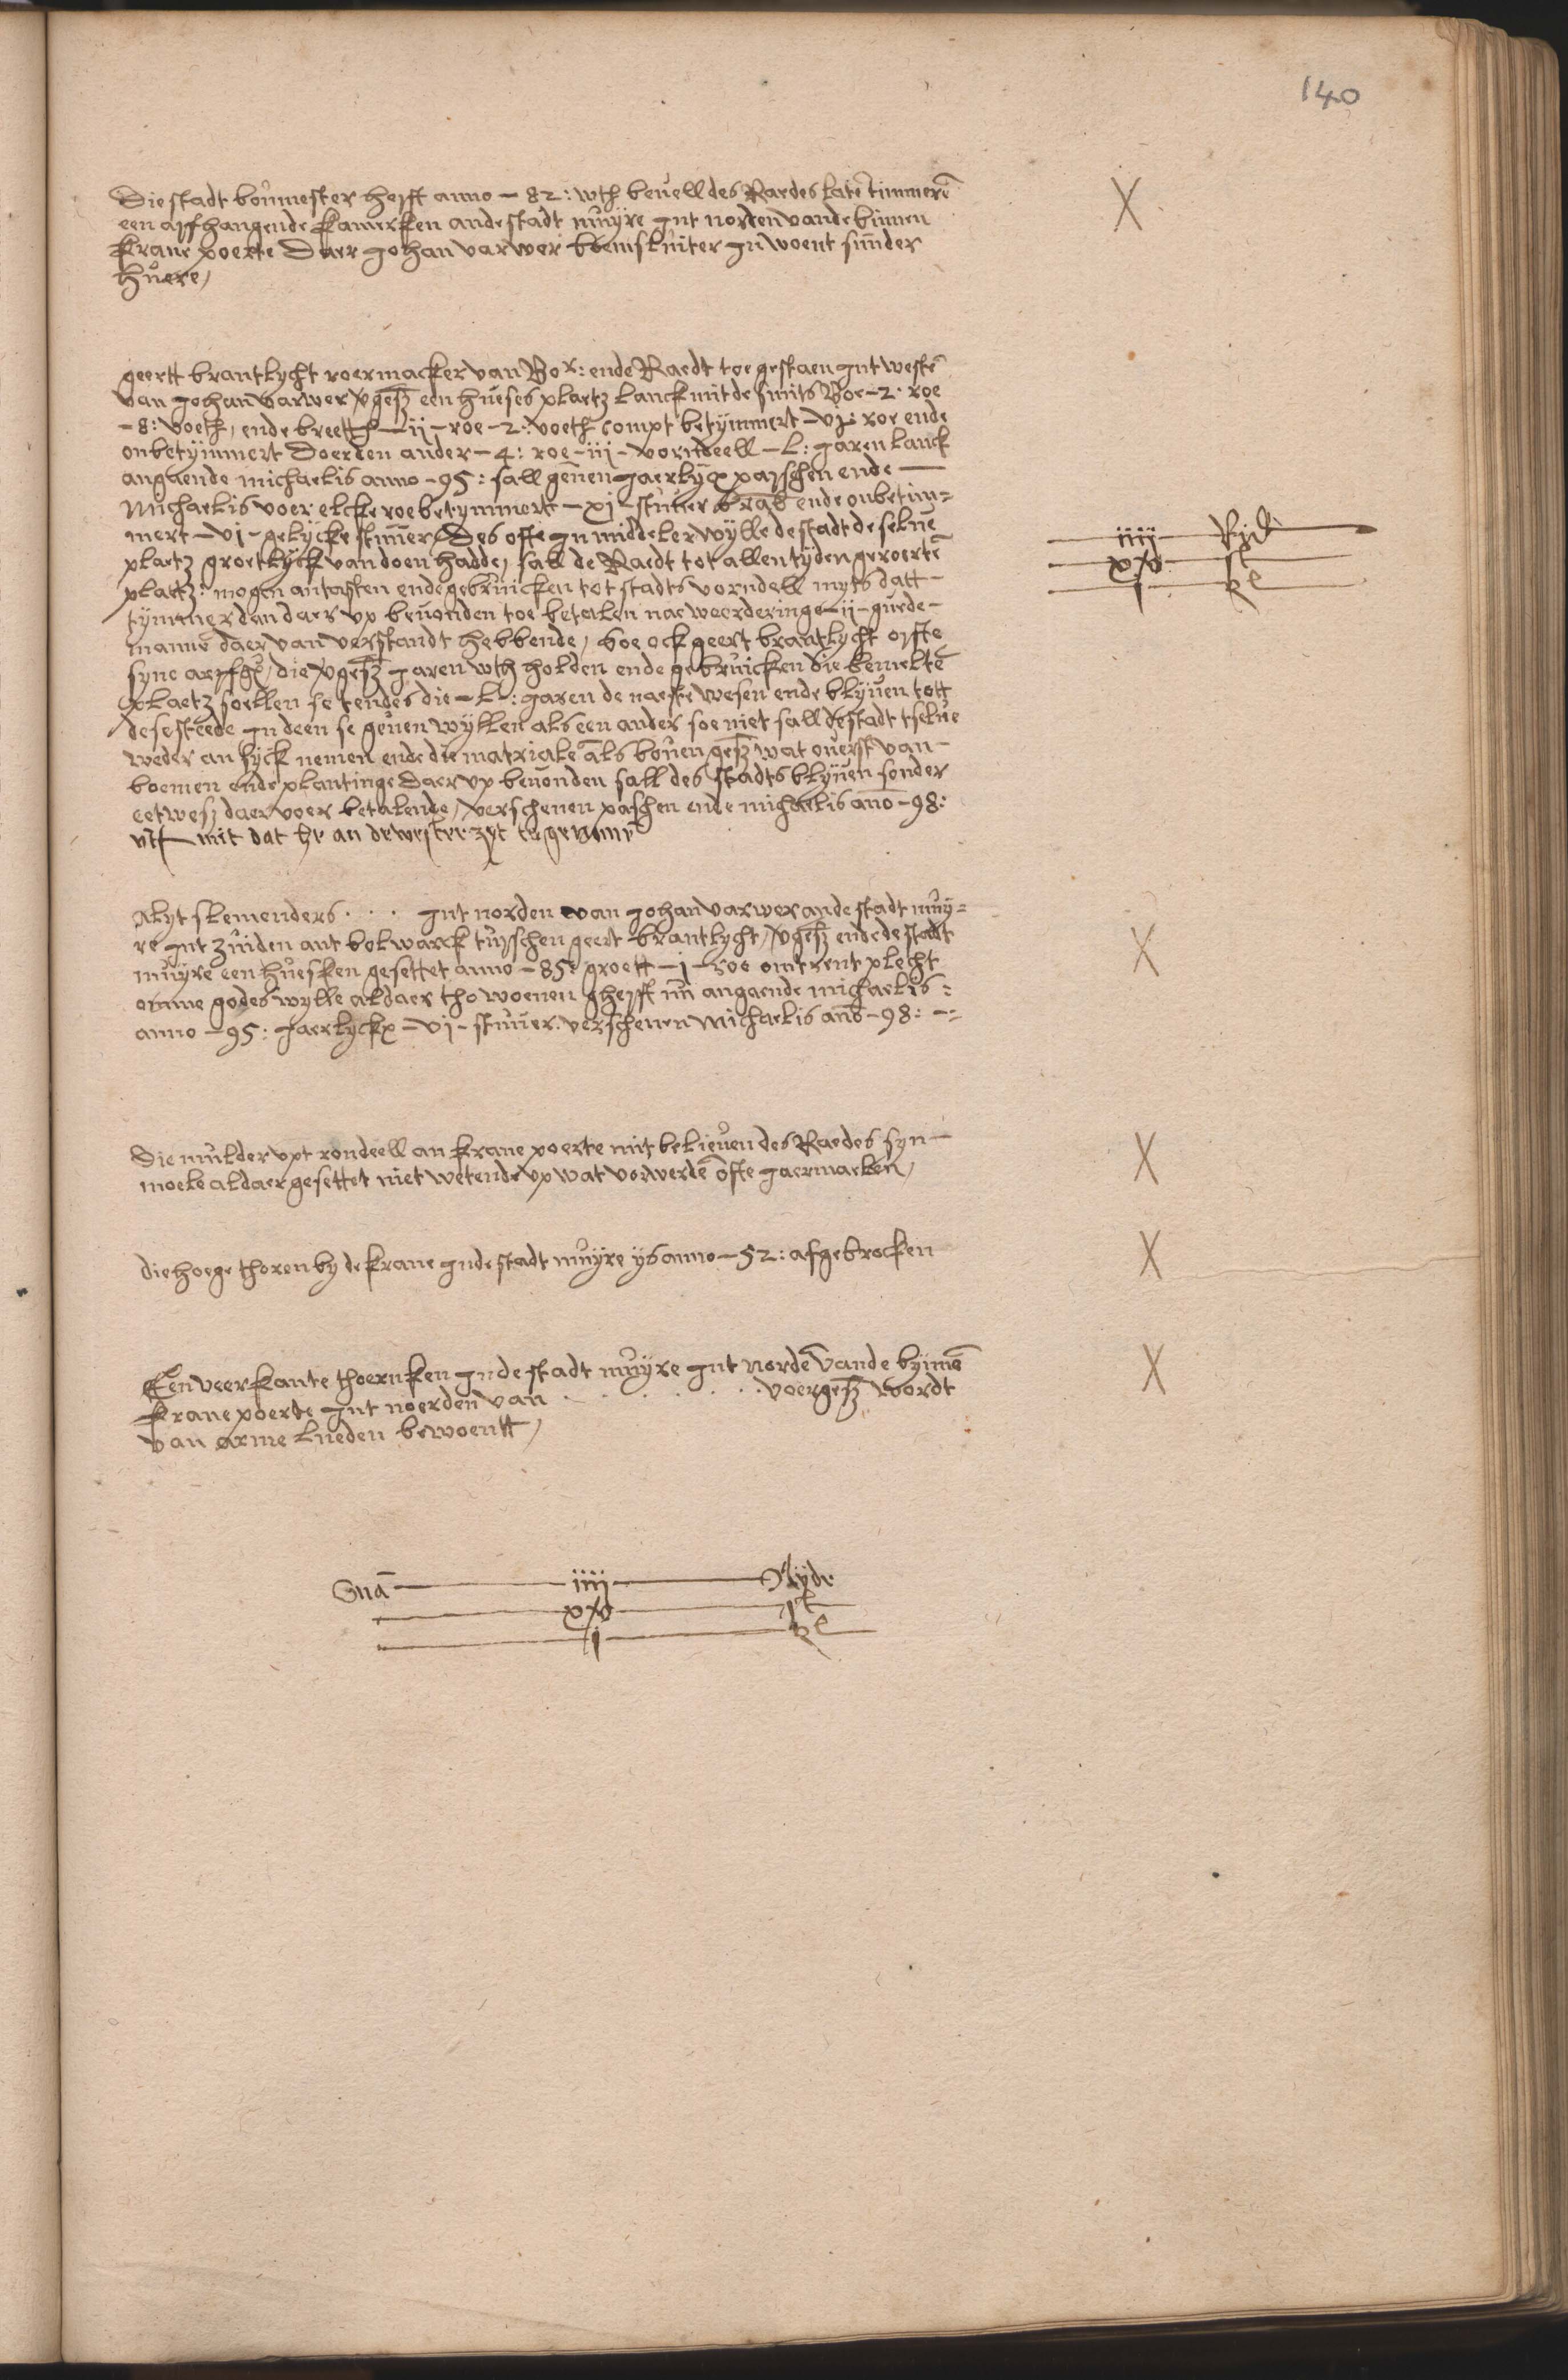 140
Die stadt boumester heift anno - 82: wth beuell des Raedes late timmere
een afhangende kamerken ande stadt muÿre int norden vande binnen
krane poerte Daer Johan varwer boemsluiter in woent sunder
huere,
geertt brantlycht roermacker van Bor: ende Raedt toe gestaen int weste
van Johan varwer vgesz een hueses plaetz lanck mit de smits Roe - 2 · roe
- 8: voeth, ende breetth - ij - roe - 2: voeth compt betÿmmert - vj: roe ende
onbetÿmmert Doerden ander - 4: roe - iij - vorndeell - L: jaren lanck
angaende michaelis anno - 95: sall geuen jaerlÿcx paeschen ende -
Michaelis voer elcke roe betymmert - xj - stuuer brab ende onbetim=
mert - vj - gelÿcke stuuer, Des ofte in middeler wÿlle de stadt de selue
plaetz groetlÿck van doen hadde, sall de Raedt tot allen tÿden geroerte
plattz: mogen antasten ende gebruicken tot stadts vorndell myts datt -
tÿmmer dan daer vp beuonden toe betalen nae weerderinge - ij - guede -
manne daer van verstandt hebbende, soe ock geert brantlycht ofte
syne arfge, die vgesz jaren wth holden ende gebruicken die bemelte
plaetz soellen se tendes die - L -: jaren de naeste wesen ende blÿuen tott
dese steede in deen se geuen wÿllen als een ander soe niet sall de stadt tselue
weder an sÿck nemen ende die matriale als bouen gesz wat ouerst van -
boemen ende plantinge daer vp beuonden sall des stadts blÿuen sonder
eetwesz daer voer betalende, verschenen paschen ende michaelis ano - 98:
mit dat he an de wester zyt
alyt slemenders . . . int norden van Johan varwer ande stadt muÿ=
re int zuiden ant bolwarck tusschen geert brantlycht, vgesz ende de stadt
muÿre een huesken gesettet anno - 85: groett - i - roe omtrent plecht
omme godes wylle aldaer tho woenen gheift nu angaende michaelis =
anno - 95: jaerlyckx - vj - stuuer: verschenen Michaelis ano - 98: -=
Die mulder vpt rondeell an krane poerte mit belieuen des Raedes syn -
moele aldaer gesettet niet wetende vp wat vorwerde ofte jaermaelen,
die hoege thoren by de krane inde stadt muÿre ÿs anno - 52: afgebrocken
Een veerkante thoernken inde stadt muÿre int norde vande byñe
krane poerte int noerden van . . . . . . . voergesz wordt
van arme lueden bewoentt,
X
iiij Ryd
xv st
i
X
X
X
X
Sua iiij Ryde
xv st
i